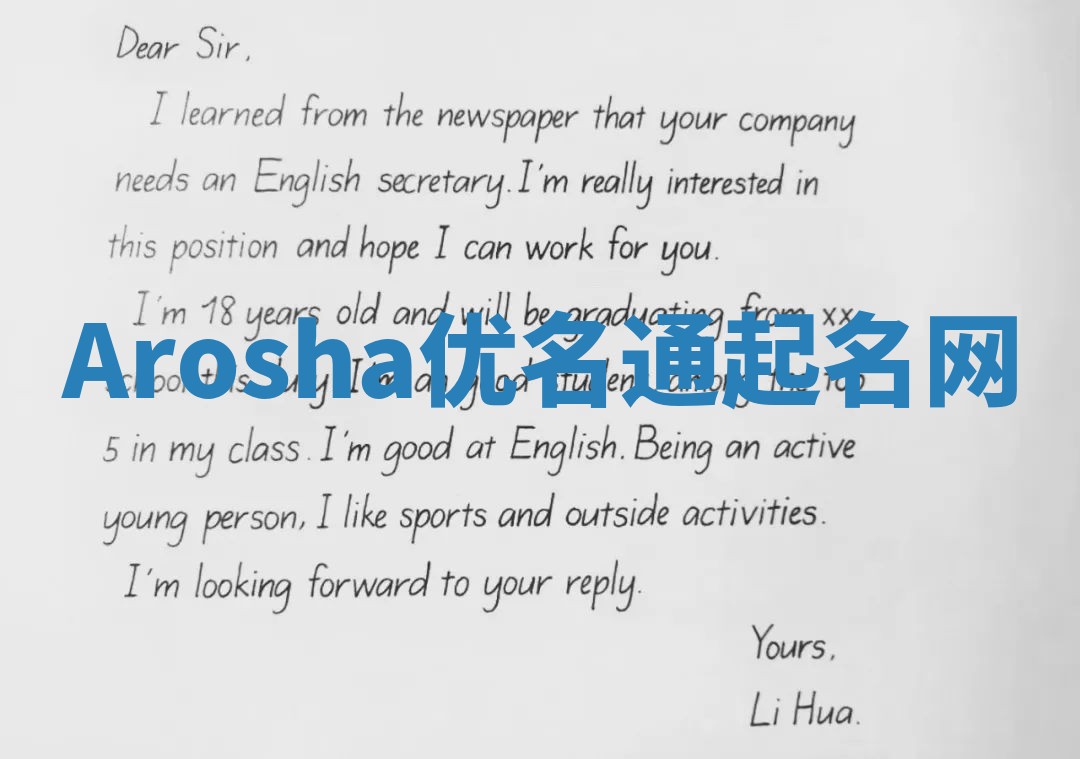 Dear Sir,
I learned from the newspaper that your company
needs an English secretary. I'm really interested in
this position and hope I can work for you.
I'm 18 years old and will be graduating from xx
Arosha优名通起名网
school this July. I'm a good student among the top
5 in my class. I'm good at English. Being an active
young person, I like sports and outside activities.
I'm looking forward to your reply.
Yours,
Li Hua.